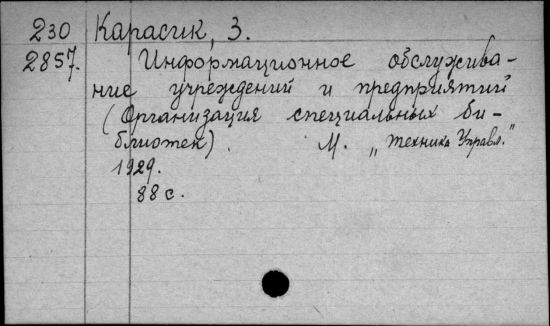 230 Карасик, З.
2857. Информационное обслужива-
ние учреждений и предприятий
(Организация специальных би-
блиотек). М. „Техника Управл."
1929.
88 с.